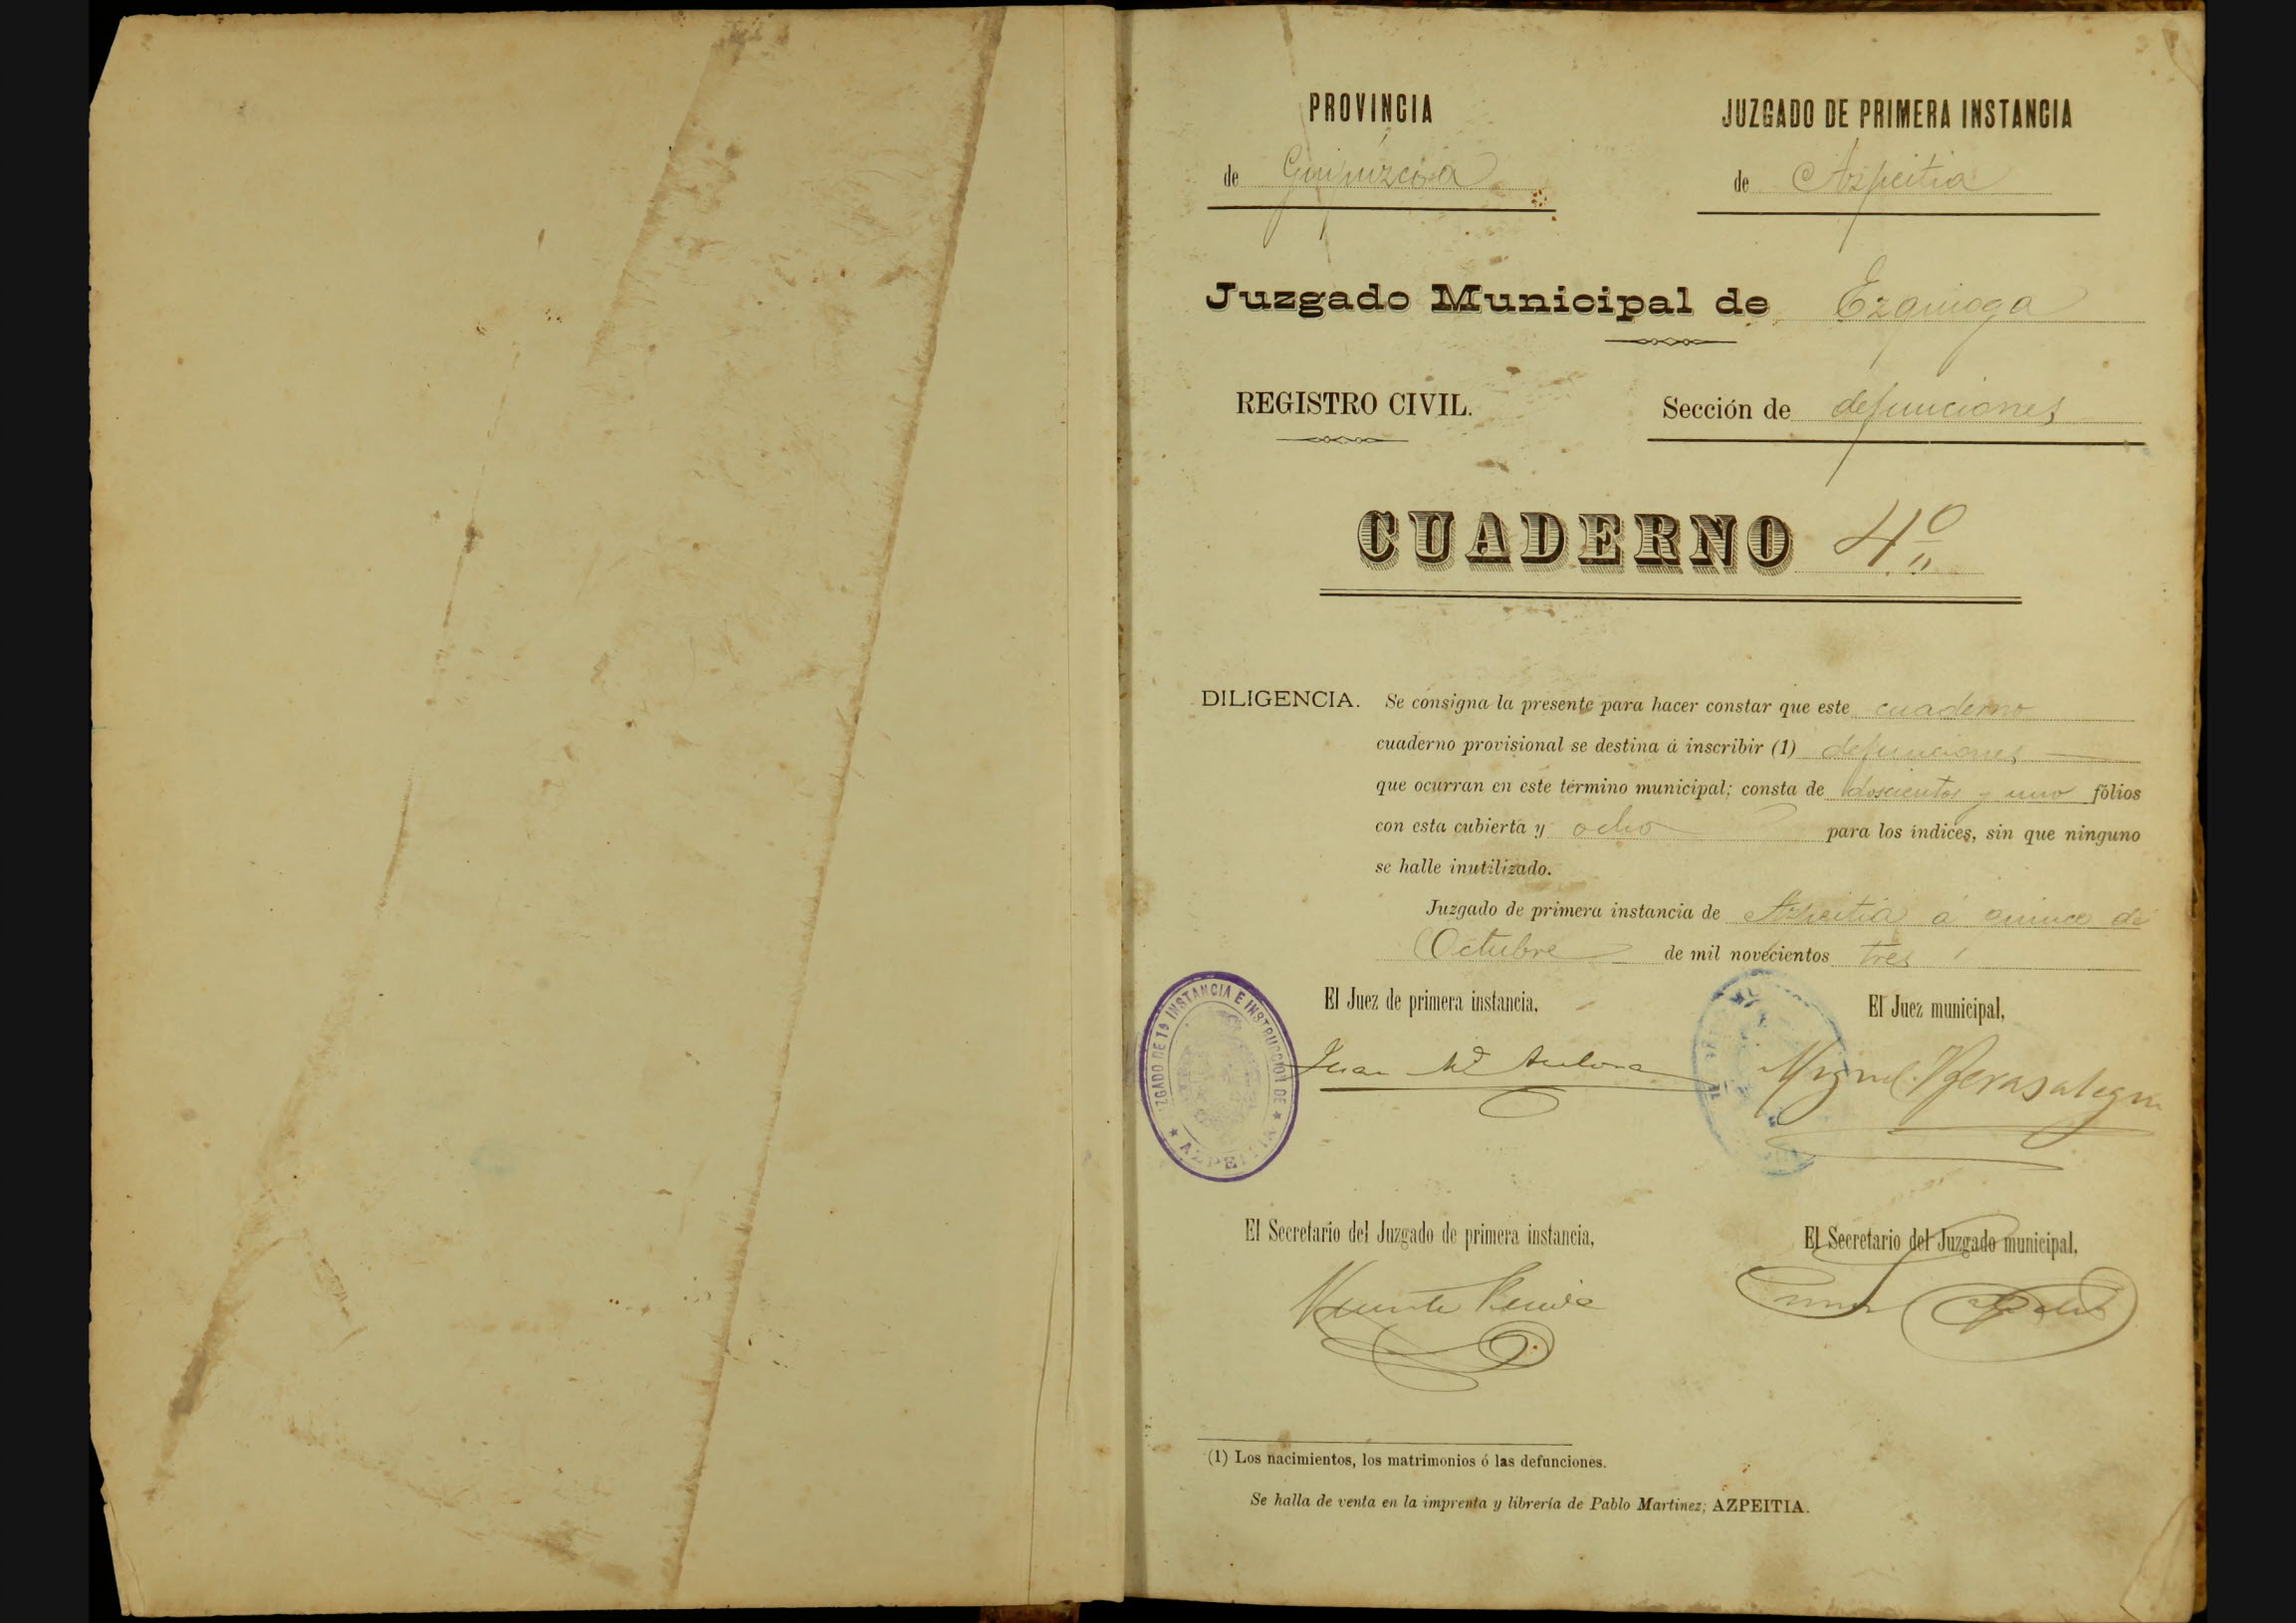 PROVINCIA
de Guipúzcoa
JUZGADO DE PRIMERA INSTANCIA
de Azpeitia
Juzgado Municipal de Ezquioga
REGISTRO CIVIL.
Sección de defunciones
CUADERNO 4º
DILIGENCIA. Se consigna la presente para hacer constar que este cuaderno
cuaderno provisional se destina á inscribir (1) defunciones
que ocurran en este término municipal; consta de doscientos y uno fólios
con esta cubierta y ocho para los índices, sin que ninguno
se halle inutilizado.
Juzgado de primera instancia de Azpeitia á quince de
Octubre de mil novecientos tres
El Juez de primera instancia,
El Juez municipal,
JUZGADO DE 1ª INSTANCIA E INSTRUCCION DE
★ AZPEITIA ★
Juan Mª
Miguel
El Secretario del Juzgado de primera instancia,
El Secretario del Juzgado municipal,
Vicente
(1) Los nacimientos, los matrimonios ó las defunciones.
Se halla de venta en la imprenta y librería de Pablo Martinez; AZPEITIA.